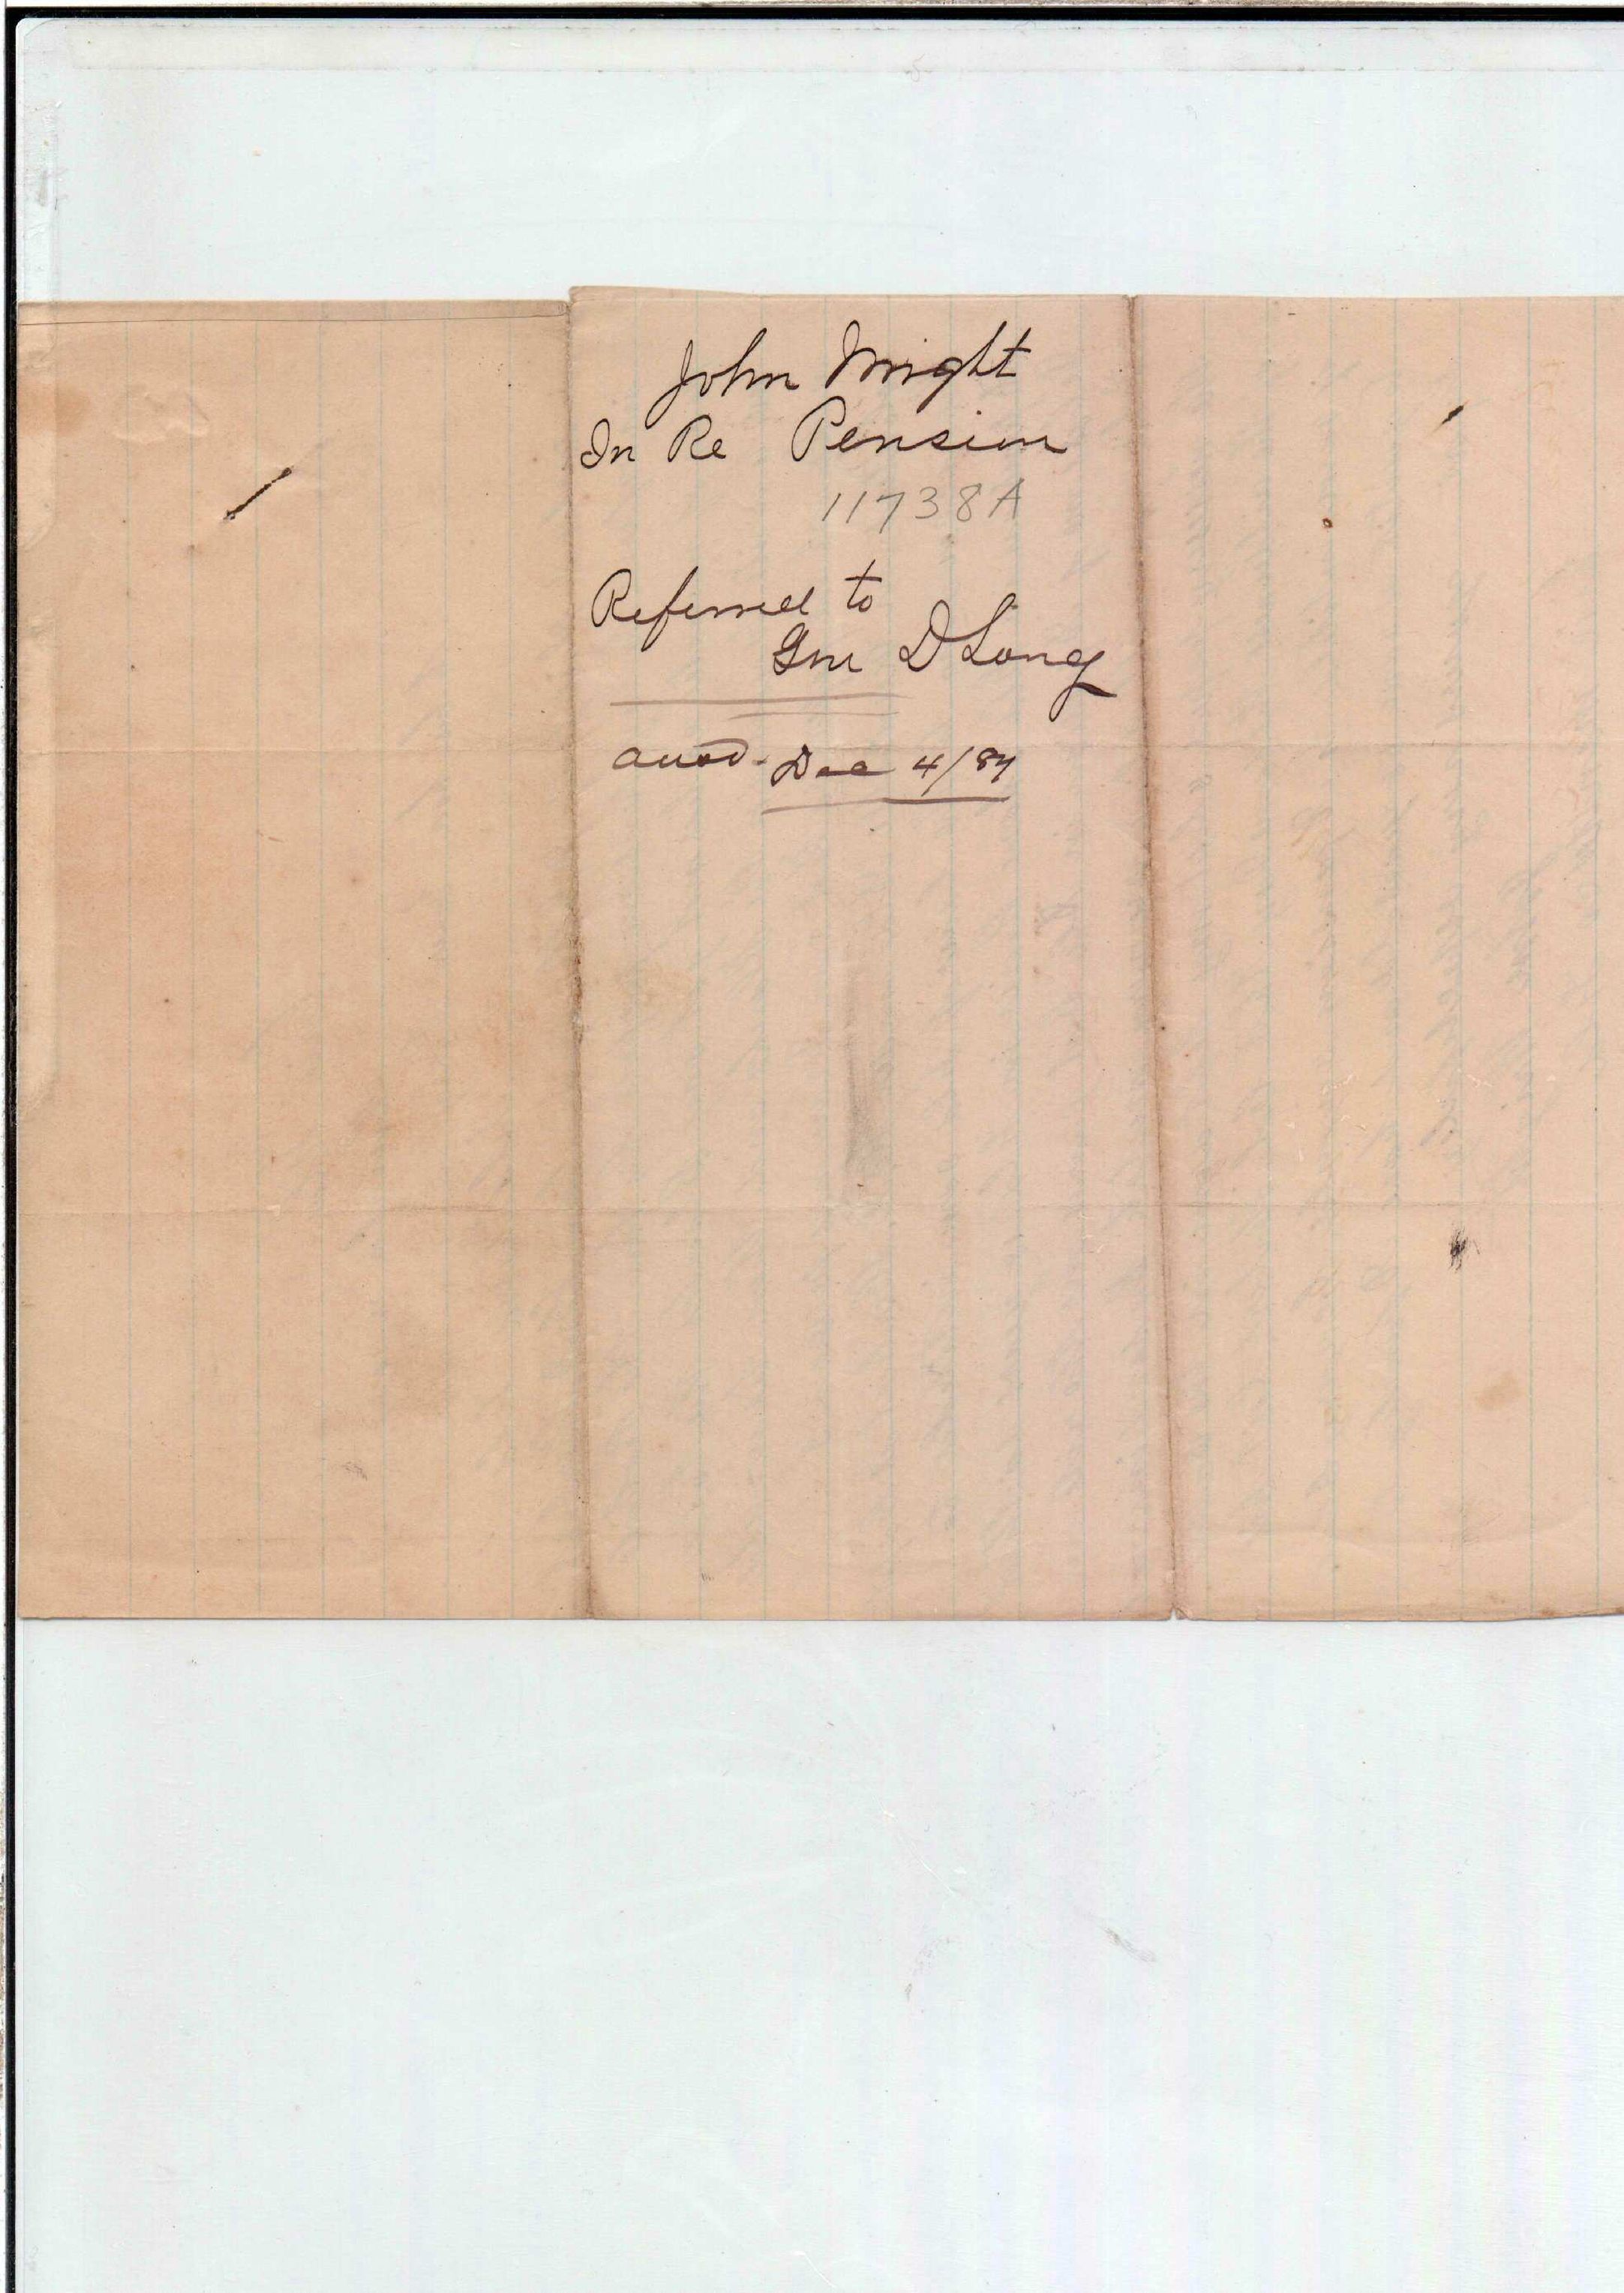 John Wright
In Re Pension
11738A
Referred to
Gen D Long
Dec 4/84